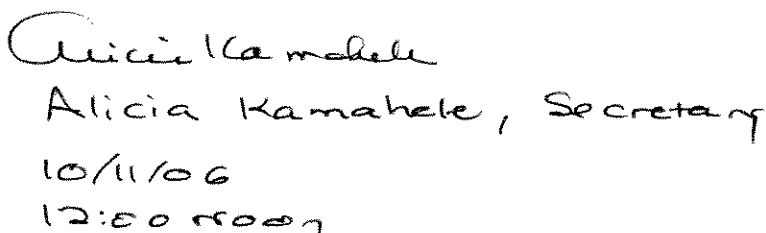 Alicia Kamahele
Alicia Kamahele, Secretary
10/11/06
12:00 noon